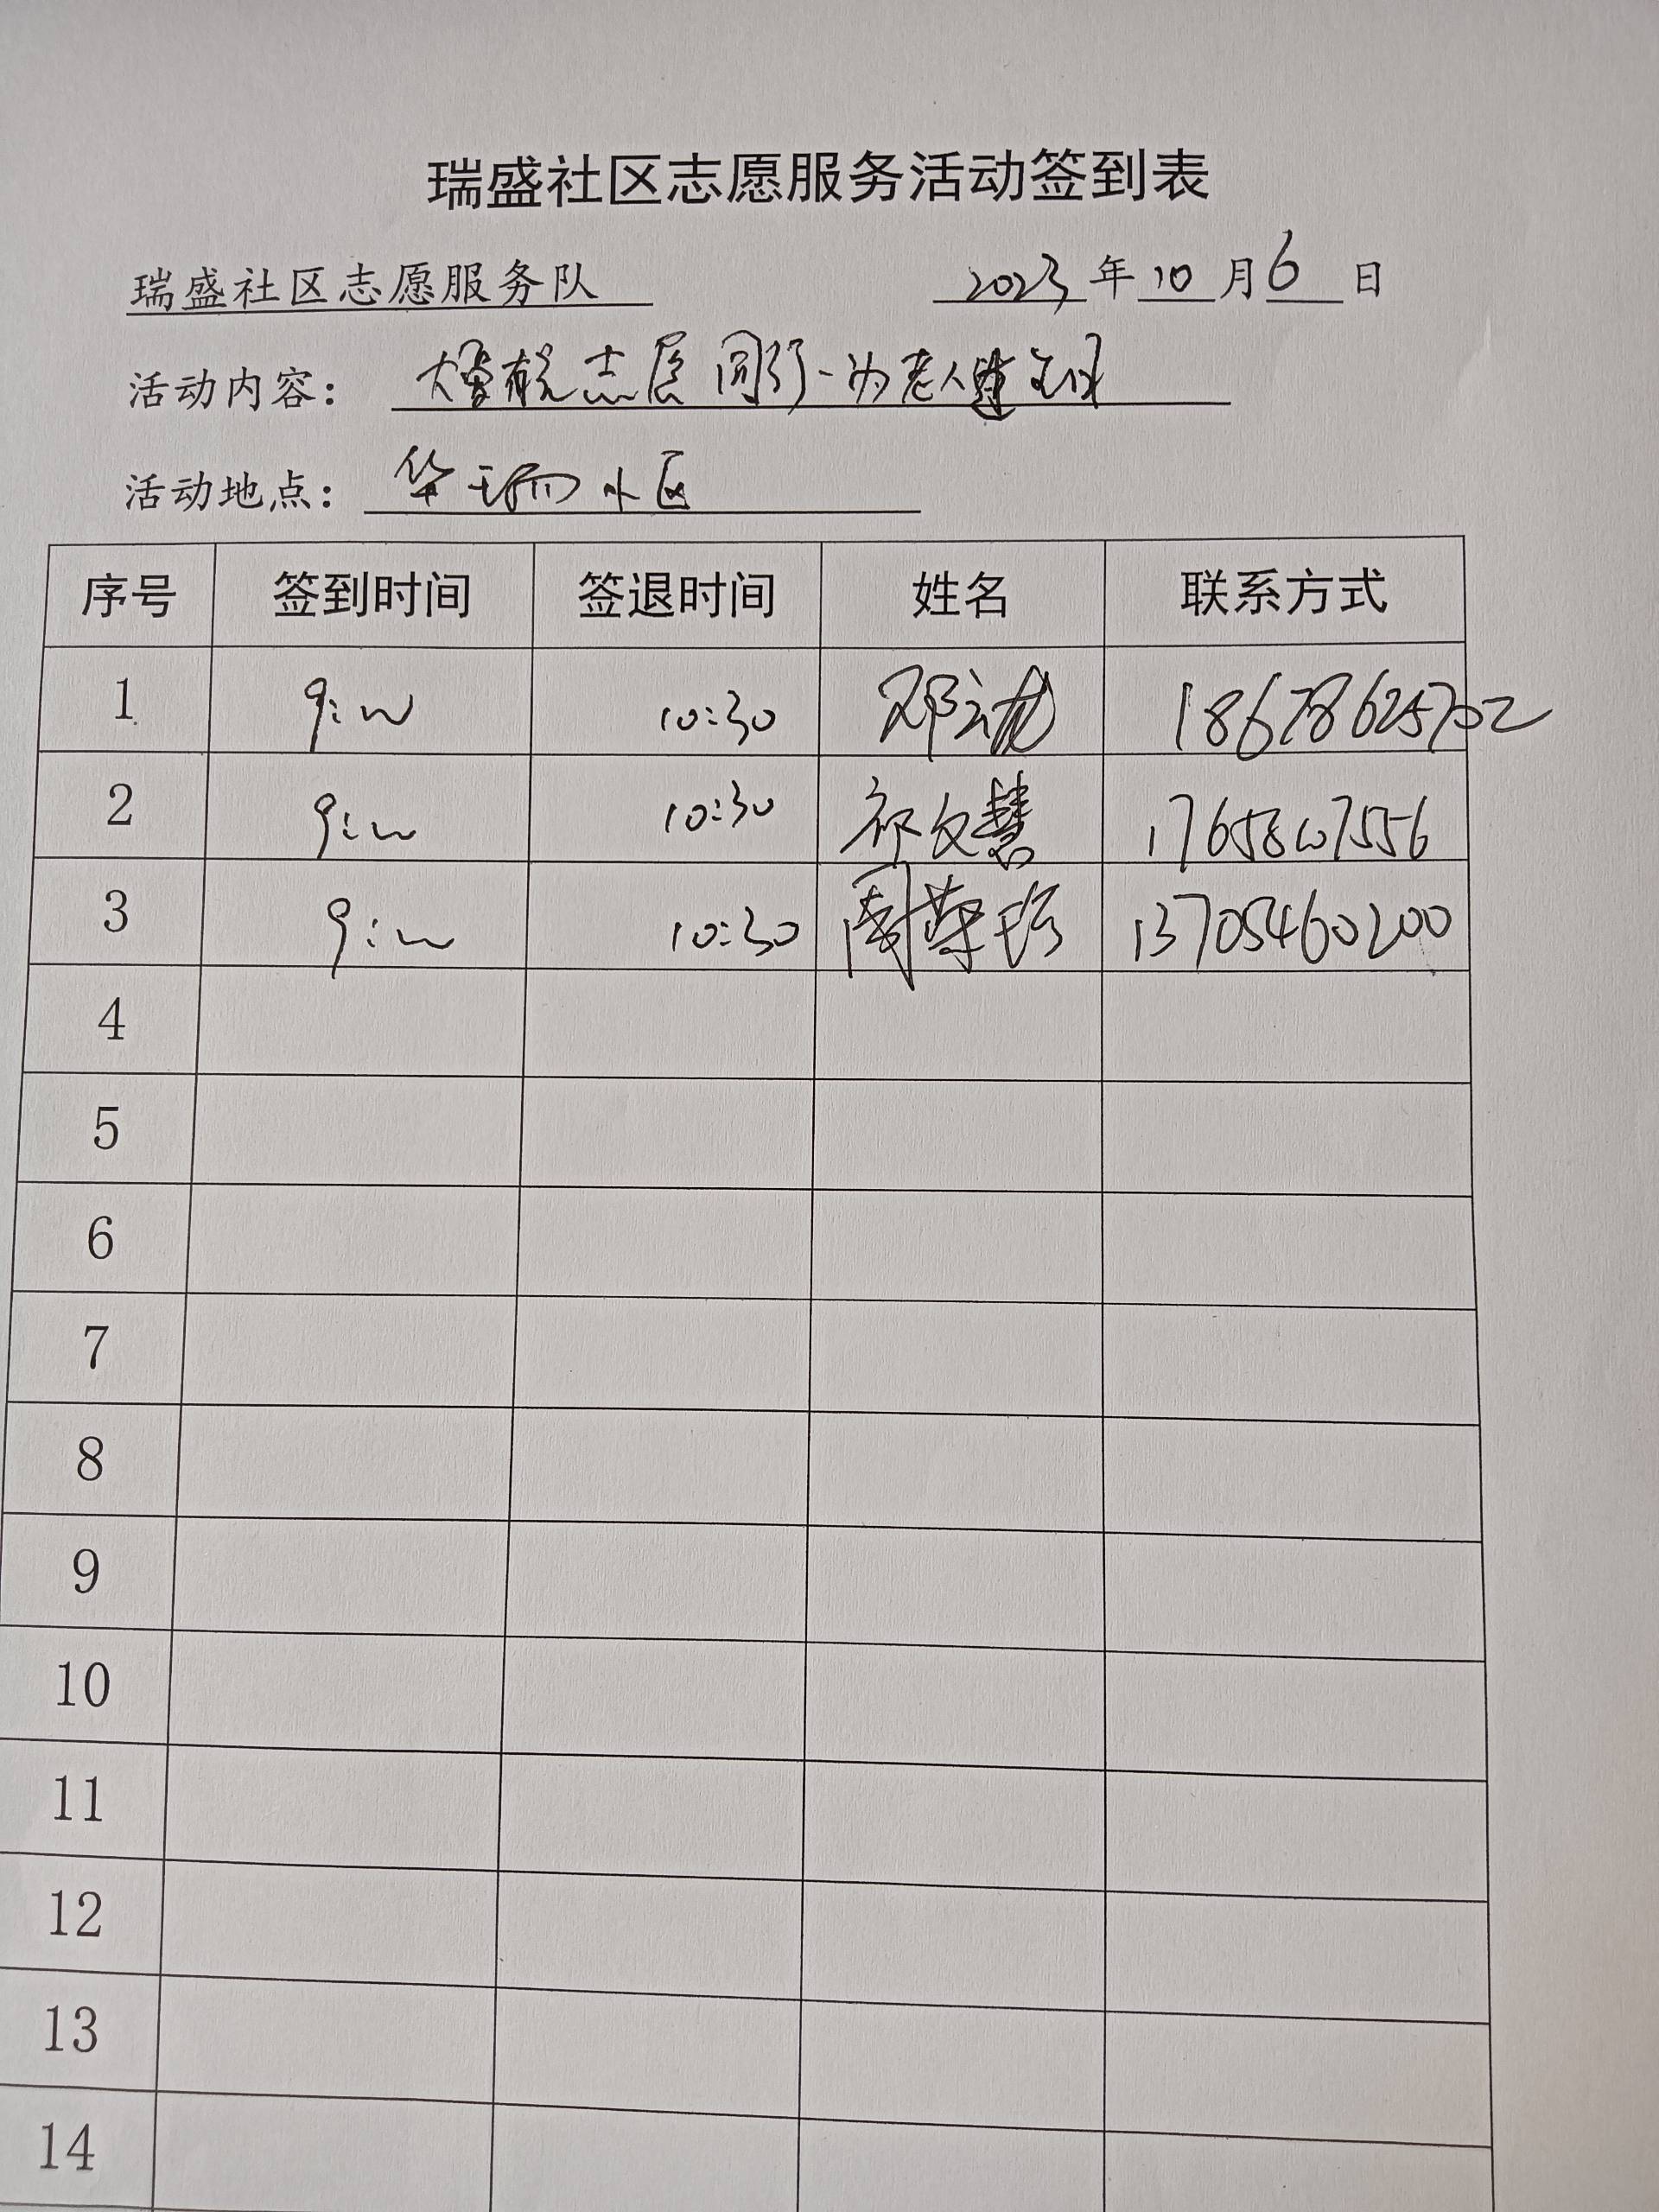 瑞盛社区志愿服务活动签到表
瑞盛社区志愿服务队 2023年10月6日
活动内容： 志愿同行-为老人
活动地点： 华瑞小区
序号 签到时间 签退时间 姓名 联系方式
1 9:00 10:30 邓云龙 18678625702
2 9:00 10:30 祁文慧 17658007556
3 9:00 10:30 周荣珍 13705460200
4
5
6
7
8
9
10
11
12
13
14